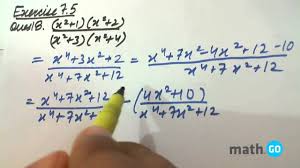 Exercise 7.5
Ques 18. (x²+1)(x²+2)
(x²+3)(x²+4)
= x⁴+3x²+2 = x⁴+7x²-4x²+12-10
x⁴+7x²+12 x⁴+7x²+12
= x⁴+7x²+12 - (4x²+10)
x⁴+7x²+ x⁴+7x²+12
math.GO